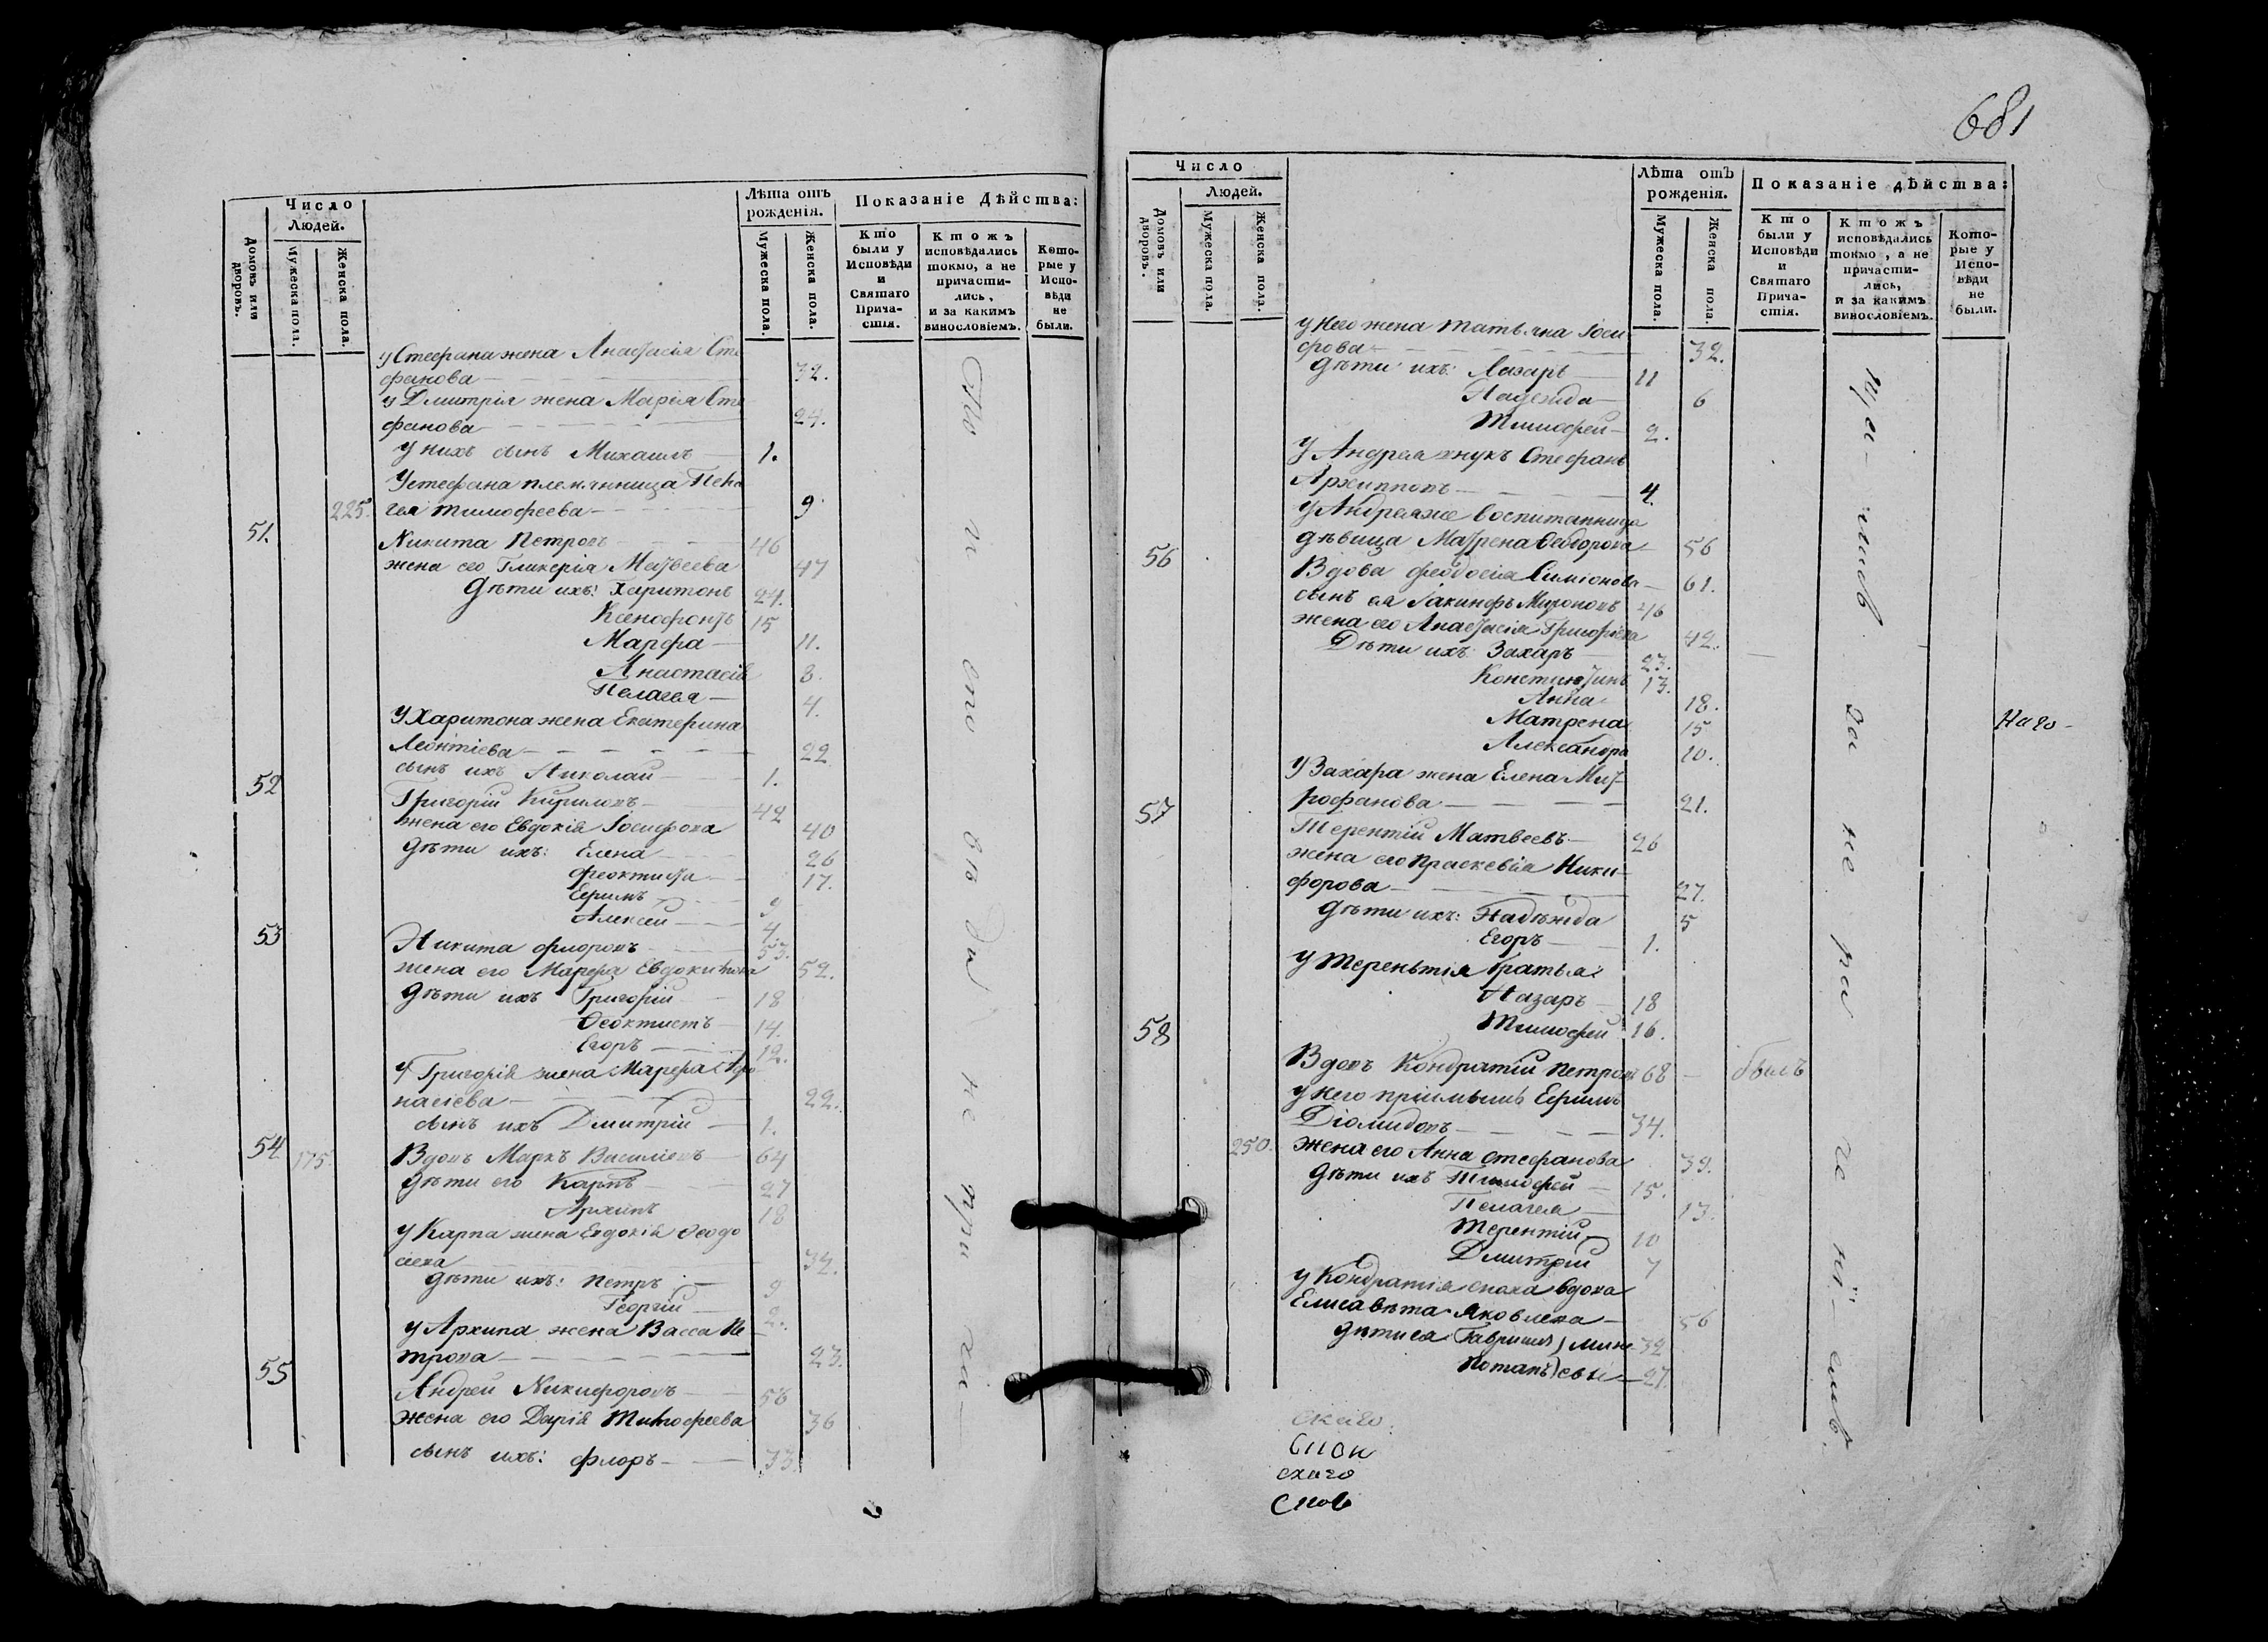 681
Число
Людей.
Домовъ или дворовъ.
Мужеска пола.
Женска пола.
Лѣта отъ рожденія.
Мужеска пола.
Женска пола.
Показаніе Дѣйства:
Кто были у Исповѣди и Святаго Прича-стія.
Ктожъ исповѣдались токмо, а не причасти-лись, и за какимъ винословіемъ.
Кото-рые у Испо-вѣди не были.
у Стефана жена Анастасія Сте
фанова 32.
у Дмитрія жена Марья Сте
фанова 24.
у нихъ сынъ Михаилъ 1.
У Стефана племянница Пела
225. гея Тимофеева 9
51. Никита Петровъ 46
жена его Гликерія Матвеева 47
дѣти ихъ: Харитонъ 24.
Ксенофонтъ 15
Марфа 11.
Анастасія 8.
Пелагея 4.
У Харитона жена Екатерина
Леонтіева 22
сынъ ихъ Николай 1.
52 Григорій Кириловъ 42
жена его Евдокія Іосифова 40
дѣти ихъ: Елена 26
Феоктиста 17.
Ефимъ 9
Алексей 4.
53 Никита Флоровъ 53.
жена его Марфа Евдокимова 52.
дѣти ихъ Григорій 18
Ѳеоктистъ 14.
Егоръ 12.
У Григорія жена Марфа Афо
насіева 22.
сынъ ихъ Дмитрій 1.
54 175 Вдовъ Маркъ Василіевъ 64
дѣти его Карпъ 27
Архипъ 18
у Карпа жена Евдокія Ѳеодо
сеева 32.
дѣти ихъ: Петръ 9
Георгій 2.
у Архипа жена Васса Пе
трова 23.
55 Андрей Никифоровъ 58
жена его Дарія Тимофеева 36
сынъ ихъ: Флоръ 33.
По исповѣди не прича-
Число
Людей.
Домовъ или дворовъ.
Мужеска пола.
Женска пола.
Лѣта отъ рожденія.
Мужеска пола.
Женска пола.
Показаніе дѣйства:
Кто были у Исповѣди и Святаго Прича-стія.
Ктожъ исповѣдались токмо, а не причасти-лись, и за какимъ винословіемъ.
Кото-рые у Испо-вѣди не были.
у Него жена Татьяна Іоси
фова 32.
дѣти ихъ: Лазарь 11
Надежда 6
Тимофей 2.
у Андрея внукъ Стефанъ
Архиповъ 4.
у Андрея же воспитанница
дѣвица Матрена Ѳеодорова 56
56 Вдова Феодосія Симіонова 61.
сынъ ея Іакинфъ Мироновъ 46
жена его Анастасія Григорьева 42.
Дѣти ихъ: Захаръ 23.
Константинъ 13.
Анна 18.
Матрена 15
Александра 10.
у Захара жена Елена Мит
рофанова 21.
57 Терентій Матвеевъ 26
жена его Праскевія Ники-
форова 27.
дѣти ихъ: Надѣжда 5
Егоръ 1.
у Терентія братья:
Назаръ 18
Тимофей 16.
58 Вдовъ Кондратій Петровъ 68 былъ
у него пріимышъ Ефимъ
Діомидовъ 34.
250. жена его Анна Стефанова 39.
дѣти ихъ Тимофей 15.
Пелагея 13.
Терентій 10
Дмитрій 7
у Кондратія сноха вдова
Елисавета Яковлева 56
дѣти ея Гавріилъ) Мине 32
Потапъ) евы 27.
ща-лись за не ра че ніемъ.
Наго-
скаго
Спон
скаго
Спов